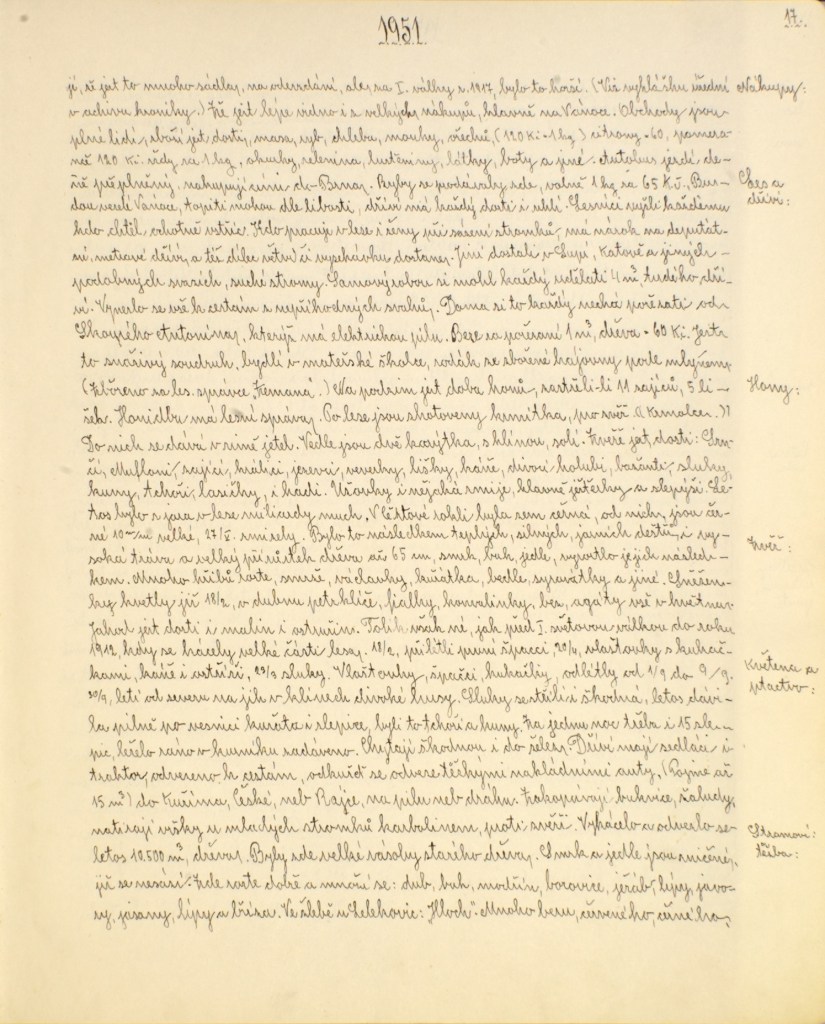 1951.
17.
jí, že jest to mnoho sádla, na odevzdání, ale, za I. války r. 1917, bylo to horší. (Viz vyhlášku úřední
Nákupy:
v achivu kroniky.) Že jest lépe vidno i z velkých nákupů, hlavně na Vánoce. Obchody jsou
plné lidí, zboží jest dosti, masa, ryb, chleba, mouky, ořechů, (120 Kč - 1 kg) citrony - 60, pomeran-
če 120 Kč. vždy za 1 kg, okurky, zelenina, luštěniny, látky, boty a jiné. Autobus jezdí de-
ně přeplněný, nakupujícími do Brna. Ryby se prodávaly zde, volně 1 kg za 65 Kč. Bu-
Les a
dříví:
dou veselé Vánoce, topiti mohou dle libosti, dříví má každý dosti i uhlí. Lesníci vyšli každému
kdo chtěl, ochotně vstříc. Kdo pracuje v lese i ženy při sázení stromků, má nárok na deputát-
ní, metrové dříví, a též dílec větví či vysekávku dostane. Jiní dostali v Lupú, Katově a jiných
podobných srázích, suché stromy. Samovýrobou si mohl každý udělati 4 m³, tvrdého dří-
ví. Vyneslo se vše k cestám s nepříhodných svahů. Doma si to každý nechá pořezati od
Skoupého Antonína, kterýž má elektrickou pilu. Beze za pořezaní 1 m³, dřeva - 60 Kč. Jest
to snaživý soudruh, bydlí v mateřské školce, rodák ze zbořené hajovny pode mlýnem
(Zbořeno za les. správce Zemana.) Na podzim jest doba honů, zastřeli-li 11 zajíců, 5 li-
Hony:
šek. Honidbu má lesní správa. Po lese jsou zhotoveny krmítka, pro zvěř.
Do nich se dává v zimě jetel. Vedle jsou dvě korýtka, s hlínou, solí. Zvěře jest, dosti: Srn-
čí, Mufloni, zajíci, králici, jezevci, veverky, lišky, káně, divocí holubi, bažanti, sluky,
kuny, tchoři, lasičky, i hadi. Užovky i nějaká zmije, hlavně ještěrky a slepýši. Le-
tos bylo z jara v lese miliardy much, V Leštově rokli byla zem černá, od nich, jsou čer-
né 10 m/m velké, 27/V. zmizely. Bylo to následkem teplých, silných, jarních dešťů, i vy-
Zvěř:
soká tráva a velký přírůstek dřeva až 65 cm, smrk, buk, jedle, vyrostlo jejich násled-
kem. Mnoho hřibů roste, smrže, václavky, kuřátka, bedle, syrovátky a jiné. Sněžen-
ky kvetly již 18/2, v dubnu petrklíče, fialky, konvalinky, bez, agáty vše v květnu.
Jahod jest dosti i malin i ostružin. Tolik však né, jak před I. světovou válkou do roku
1912, kdy se kácely velké části lesa. 18/2, přilítli první špačci, 20/4, vlaštovky s kukač-
Květena a
ptactvo:
kami, káně i ostříži, 23/3 sluky. Vlaštovky, špačci, kukačky, odlétly od 1/9 do 9/9.
20/9, letí od severu na jih v klínech divoké husy. Sluky se střílí i škodná, letos dáví-
la pilně po vesnici kuřata i slepice, byli to tchoři a kuny. Za jednu noc třeba i 15 sle-
pic, leželo ráno v kurníku zadáveno. Chytají škodnou i do želez. Dříví mají sedláci i
traktor, odvezeno k cestám, odkudž se odveze těžkými nákladními auty, (Pojme až
15 m³) do Kuřima, České, neb Rájce, na pilu neb dráhu. Zakopávají bukvice, žaludy,
natírají vršky u mladých stromků karbolinem, proti zvěři. Vykácelo a odvezlo se
Stromoví
těžba:
letos 10.500 m³, dřeva. Byly zde velké zásoby starého dřeva. Smrk a jedle jsou zničené,
již se nesází. Zde roste dobře a množí se: dub, buk, modřín, borovice, jeřáb, lípy, javo-
ry, jasany, lípy a bříza. Ve žlebě u Lelekovic: "Kloch". Mnoho bezu, červeného, černého,